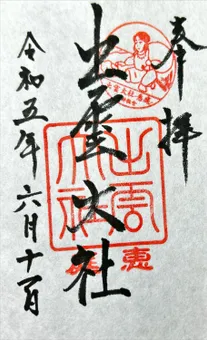 奉拝
出雲大社
令和五年六月十一日
出雲
大社